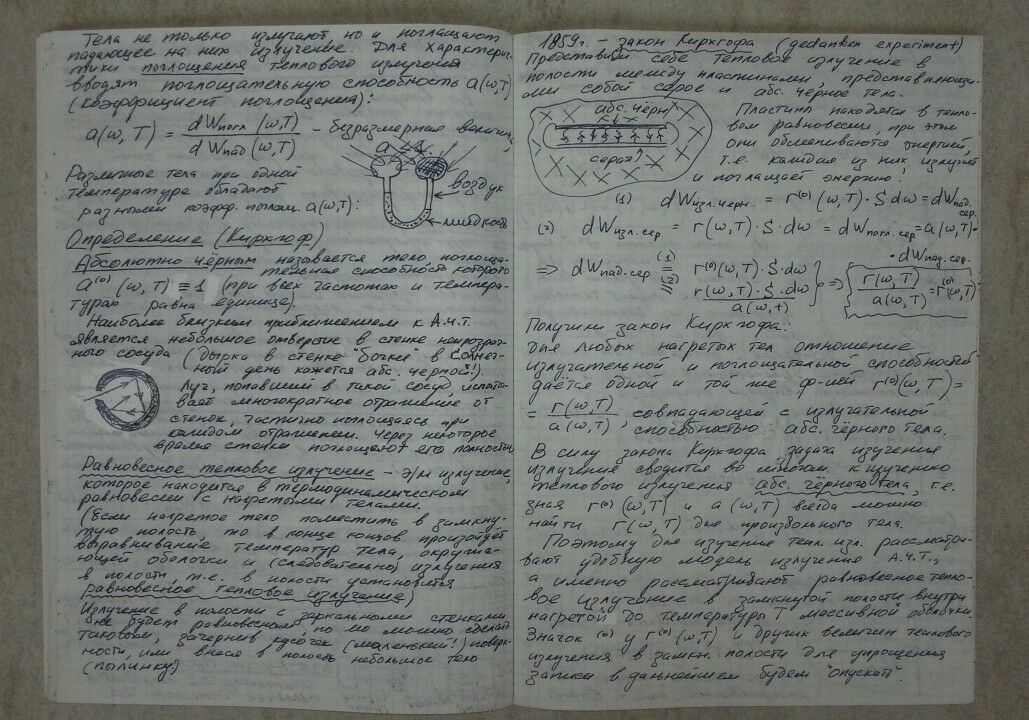 Тела не только излучают но и поглощают
падающее на них излучение. Для характерис-
тики поглощения теплового излучения
вводят поглощательную способность a(ω,T)
(коэффициент поглощения):
a(ω,T) = dWпогл(ω,T) / dWпад(ω,T) – безразмерная величин,
Различные тела при одной
температуре обладают
разными коэфф. поглощ. a(ω,T):
воздух
жидкость
Определение (Кирхгоф)
Абсолютно чёрным называется тело, поглоща-
тельная способность которого
a⁽⁰⁾(ω,T) ≡ 1 (при всех частотах и темпера-
турах равна единице).
Наиболее близким приближением к А.Ч.Т.
является небольшое отверстие в стенке непрозрач-
ного сосуда (Дырка в стенке "бочки" в солнеч-
ный день кажется абс. черной!)
Луч, попавший в такой сосуд, испыты-
вает многократное отражение от
стенок, частично поглощаясь при
каждом отражении. Через некоторое
время стенки поглощают его полностью
Равновесное тепловое излучение – э/м излучение,
которое находится в термодинамическом
равновесии с нагретыми телами.
(Если нагретое тело поместить в замкну-
тую полость, то в конце концов произойдёт
выравнивание температур тела, окружа-
ющей оболочки и (следовательно) излучения
в полости, т.е. в полости установится
равновесное тепловое излучение)
Излучение в полости с зеркальными стенками
не будет равновесным, но его можно сделать
таковым, зачернив кусочек (маленький!) поверх-
ности, или внеся в полость небольшое тело
(пылинку!)
1859г. – закон Кирхгофа (gedanken experiment)
Представим себе тепловое излучение в
полости между пластинами, представляющи-
ми собой серое и абс. чёрное тела.
абс. чёрн
серая
Пластины находятся в тепло-
вом равновесии, при этом
они обмениваются энергией,
т.е. каждая из них излучает
и поглощает энергию;
(1) dWизл.черн. = r⁽⁰⁾(ω,T)·S·dω = dWпад.сер.
(2) dWизл.сер = r(ω,T)·S·dω = dWпогл.сер = a(ω,T)·
·dWпад.сер.
⇒ dWпад.сер (1)= r⁽⁰⁾(ω,T)·S·dω
(2)= r(ω,T)·S·dω / a(ω,T) ⇒ r(ω,T) / a(ω,T) = r⁽⁰⁾(ω,T)
Получили закон Кирхгофа:
для любых нагретых тел отношение
излучательной и поглощательной способностей
даётся одной и той же ф-ией r⁽⁰⁾(ω,T) =
= r(ω,T) / a(ω,T), совпадающей с излучательной
способностью абс. чёрного тела.
В силу закона Кирхгофа задача изучения
излучения сводится во многом к изучению
теплового излучения абс. чёрного тела, т.е.
зная r⁽⁰⁾(ω,T) и a(ω,T) всегда можно
найти r(ω,T) для произвольного тела.
Поэтому для изучения тепл. изл. рассматри-
вают удобную модель излучения А.Ч.Т.,
а именно рассматривают равновесное тепло-
вое излучение в замкнутой полости внутри
нагретой до температуры T массивной оболочки.
Значок ⁽⁰⁾ у r⁽⁰⁾(ω,T) и других величин теплового
излучения в замкн. полости для упрощения
записи в дальнейшем будем "опускать".